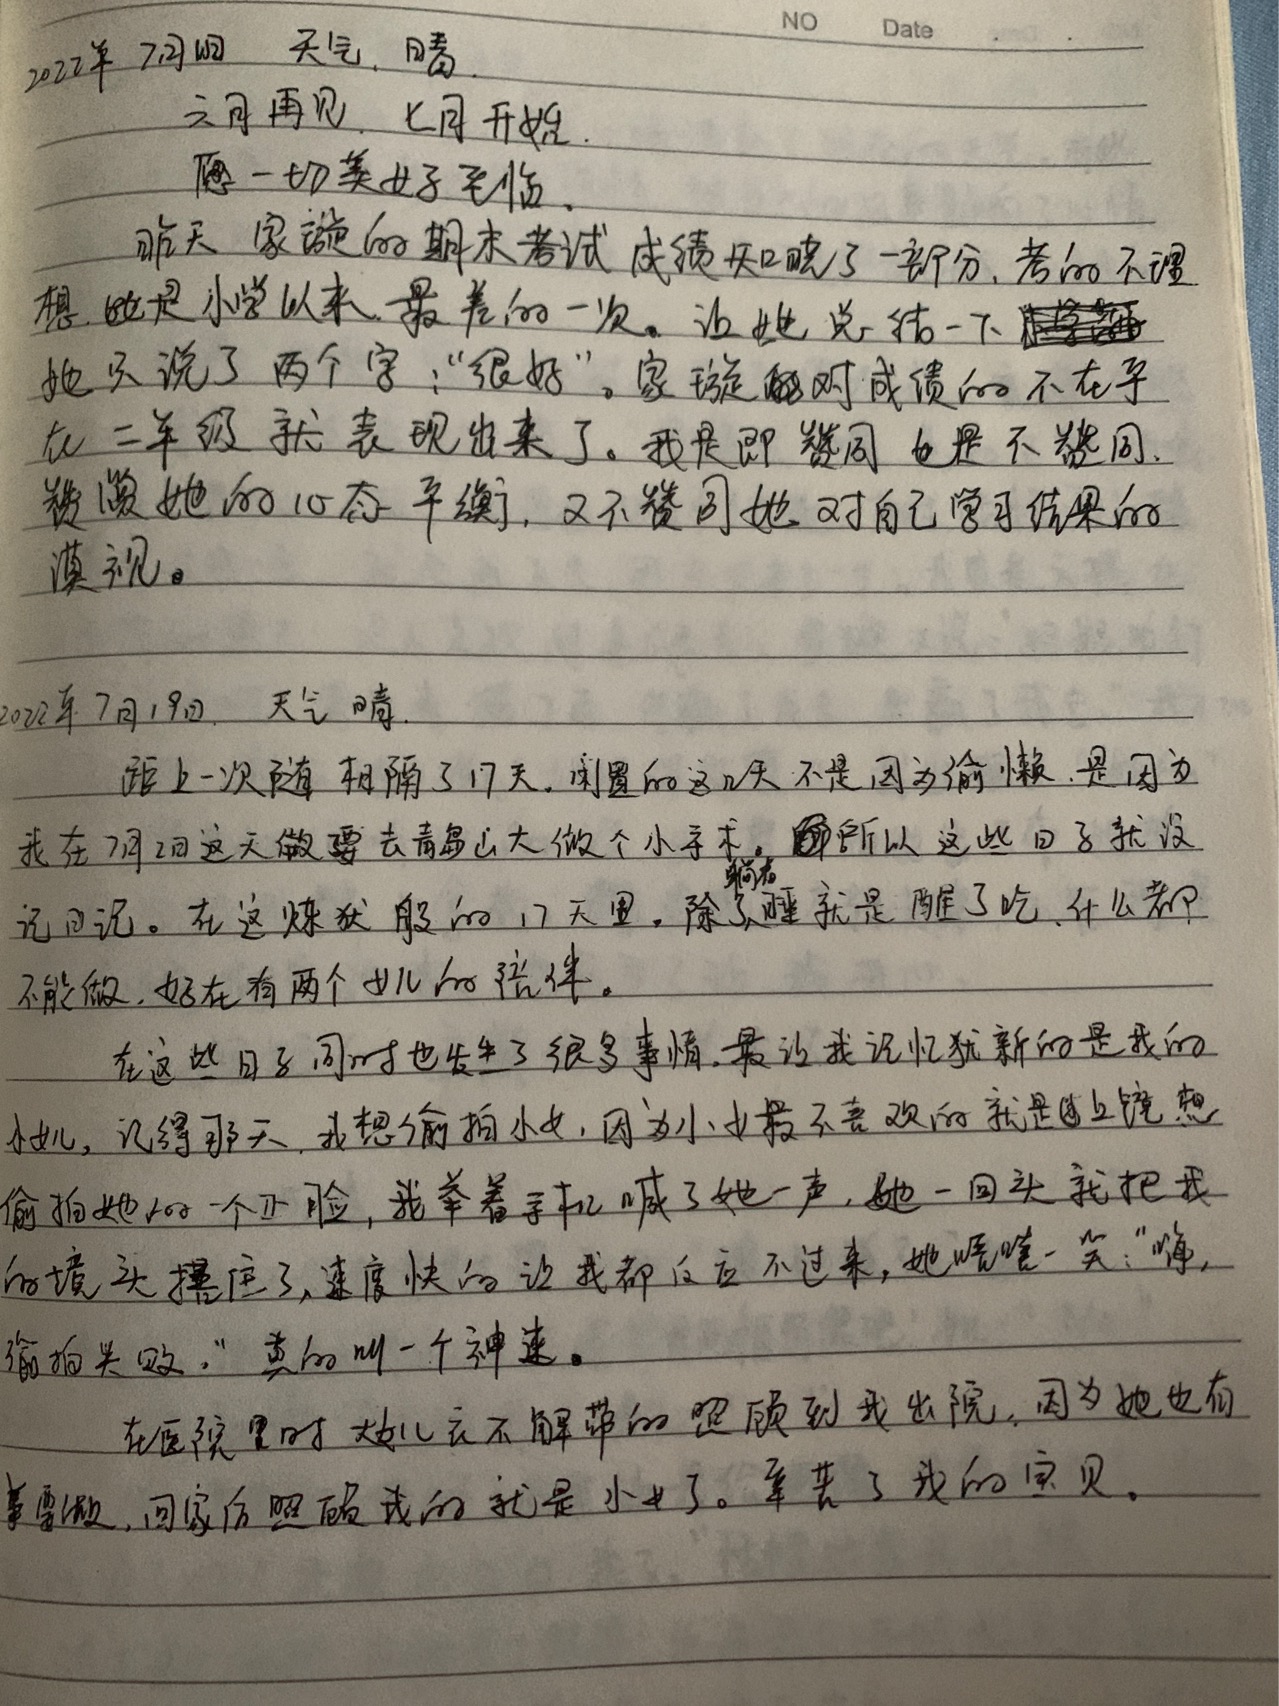 NO Date
2022年7月1日 天气 晴.
六月再见. 七月开始.
愿一切美好至临.
昨天 家璇的期末考试 成绩知晓了一部分, 考的不理
想. 也是小学以来 最差的一次。让她总结一下
她只说了两个字:“很好”。家璇 对成绩的不在乎
在二年级就表现出来了。我是即赞同也是不赞同.
赞赏她的心态平衡, 又不赞同她对自己学习结果的
漠视。
2022年7月19日. 天气 晴.
距上一次随 相隔了17天. 闲置的这几天不是因为偷懒. 是因为
我在7月2日这天做要去青岛山大做个小手术。所以这些日子就没
记日记。在这炼狱般的17天里. 除了躺着睡就是醒了吃. 什么都
不能做. 好在有两个女儿的陪伴。
在这些日子同时也发生了很多事情. 最让我记忆犹新的是我的
小女儿, 记得那天, 我想偷拍小女, 因为小女最不喜欢的就是上镜 想
偷拍她的一个正脸, 我举着手机喊了她一声, 她一回头就把我
的境头挡住了, 速度快的让我都反应不过来, 她嘻嘻一笑:“嗨,
偷拍失败.” 真的叫一个神速。
在医院里时 大女儿衣不解带的照顾到我出院. 因为她也有
事要做, 回家后照顾我的就是小女了。辛苦了我的宝贝。